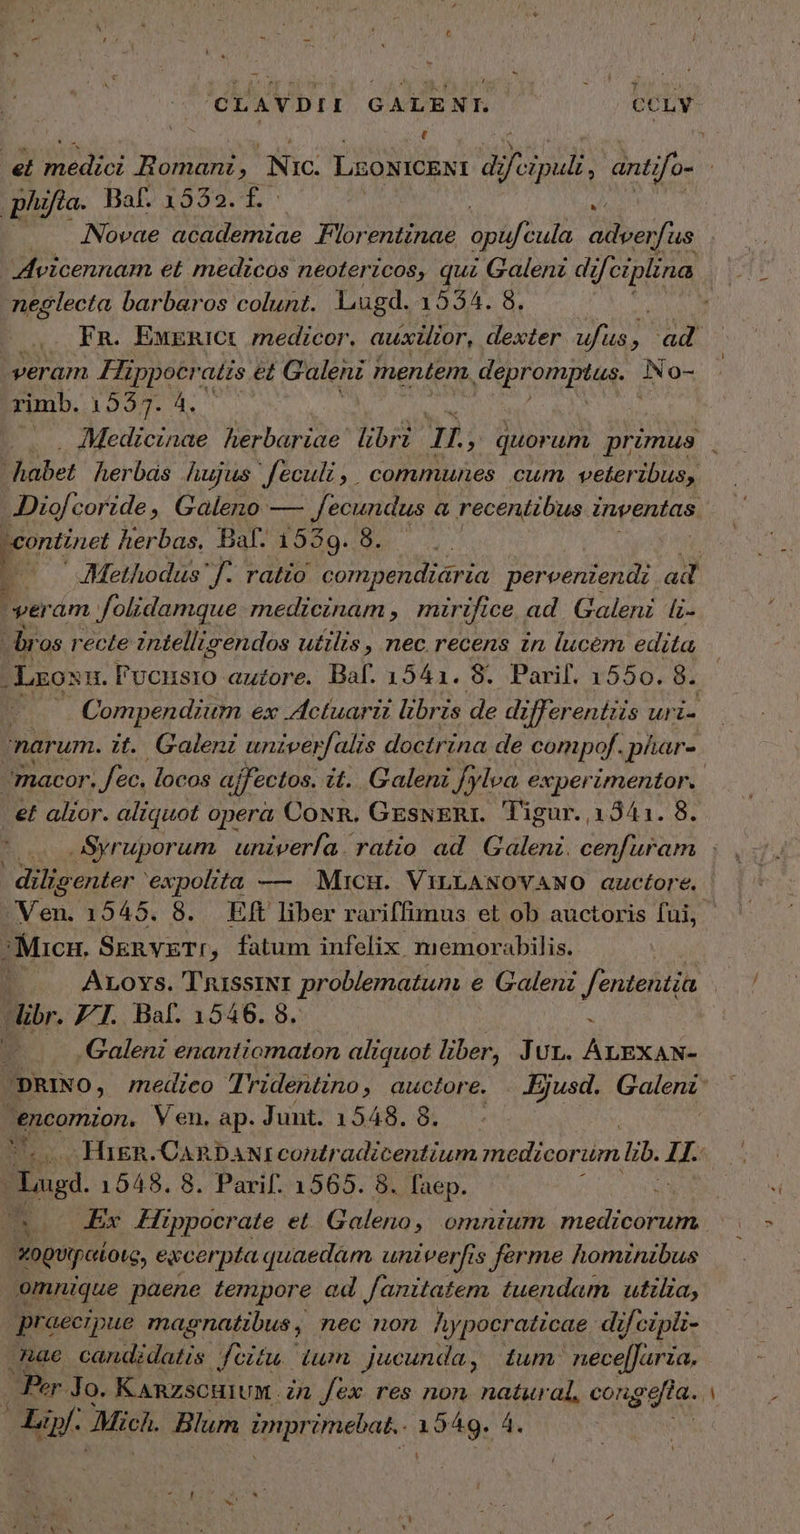 CLAVDII GALENI. CCLV
et medici Romani, Nic. Leoniceni difcipuli, antifo-
phifta. Baf. 1532. f.
Novae academiae Florentinae opufcula adverfus
Avicennam et medicos neotericos, qui Galeni difciplina
neglecta barbaros colunt. Lugd. 1534. 8.
Fr. Emerici medicor. auxilior, dexter ufus, ad
veram Hippocratis et Galeni mentem depromptus. No-
rimb. 1537. 4.
Medicinae herbariae libri II., quorum primus
habet herbas hujus feculi, communes cum veteribus,
Diofcoride, Galeno — fecundus a recentibus inventas
continet herbas, Baf. 1539. 8.
Methodus f. ratio compendiaria perveniendi ad
veram folidamque medicinam, mirifice ad Galeni li-
bros recte intelligendos utilis, nec recens in lucem edita
Leonh. Fuchsio autore. Baf. 1541. 8. Parif. 1550. 8.
Compendium ex Actuarii libris de differentiis uri-
narum. it. Galeni univerfalis doctrina de compof. phar-
macor. fec. locos affectos. it. Galeni fylva experimentor.
et alior. aliquot opera Conr. Gesneri. Tigur. 1541. 8.
Syruporum univerfa ratio ad Galeni cenfuram
diligenter expolita — Mich. Villanovano auctore.
Ven. 1545. 8. Eft liber rariffimus et ob auctoris fui,
Mich. Serveti, fatum infelix memorabilis.
Aloys. Trissini problematum e Galeni fententia
libr. VI. Baf. 1546. 8.
Galeni enantiomaton aliquot liber, Jul. Alexan-
drino, medico Tridentino, auctore. Ejusd. Galeni
encomion. Ven. ap. Junt. 1548. 8.
Hier. Cardani contradicentium medicorum lib. II.
Lugd. 1548. 8. Parif. 1565. 8. faep.
Ex Hippocrate et Galeno, omnium medicorum
κορυφαίοις, excerpta quaedam univerfis ferme hominibus
omnique paene tempore ad fanitatem tuendam utilia,
praecipue magnatibus, nec non hypocraticae difcipli-
nae candidatis fcitu tum jucunda, tum neceffaria.
Per Jo. Karzschium in fex res non natural, congefta.
Lipf. Mich. Blum imprimebat. 1549. 4.